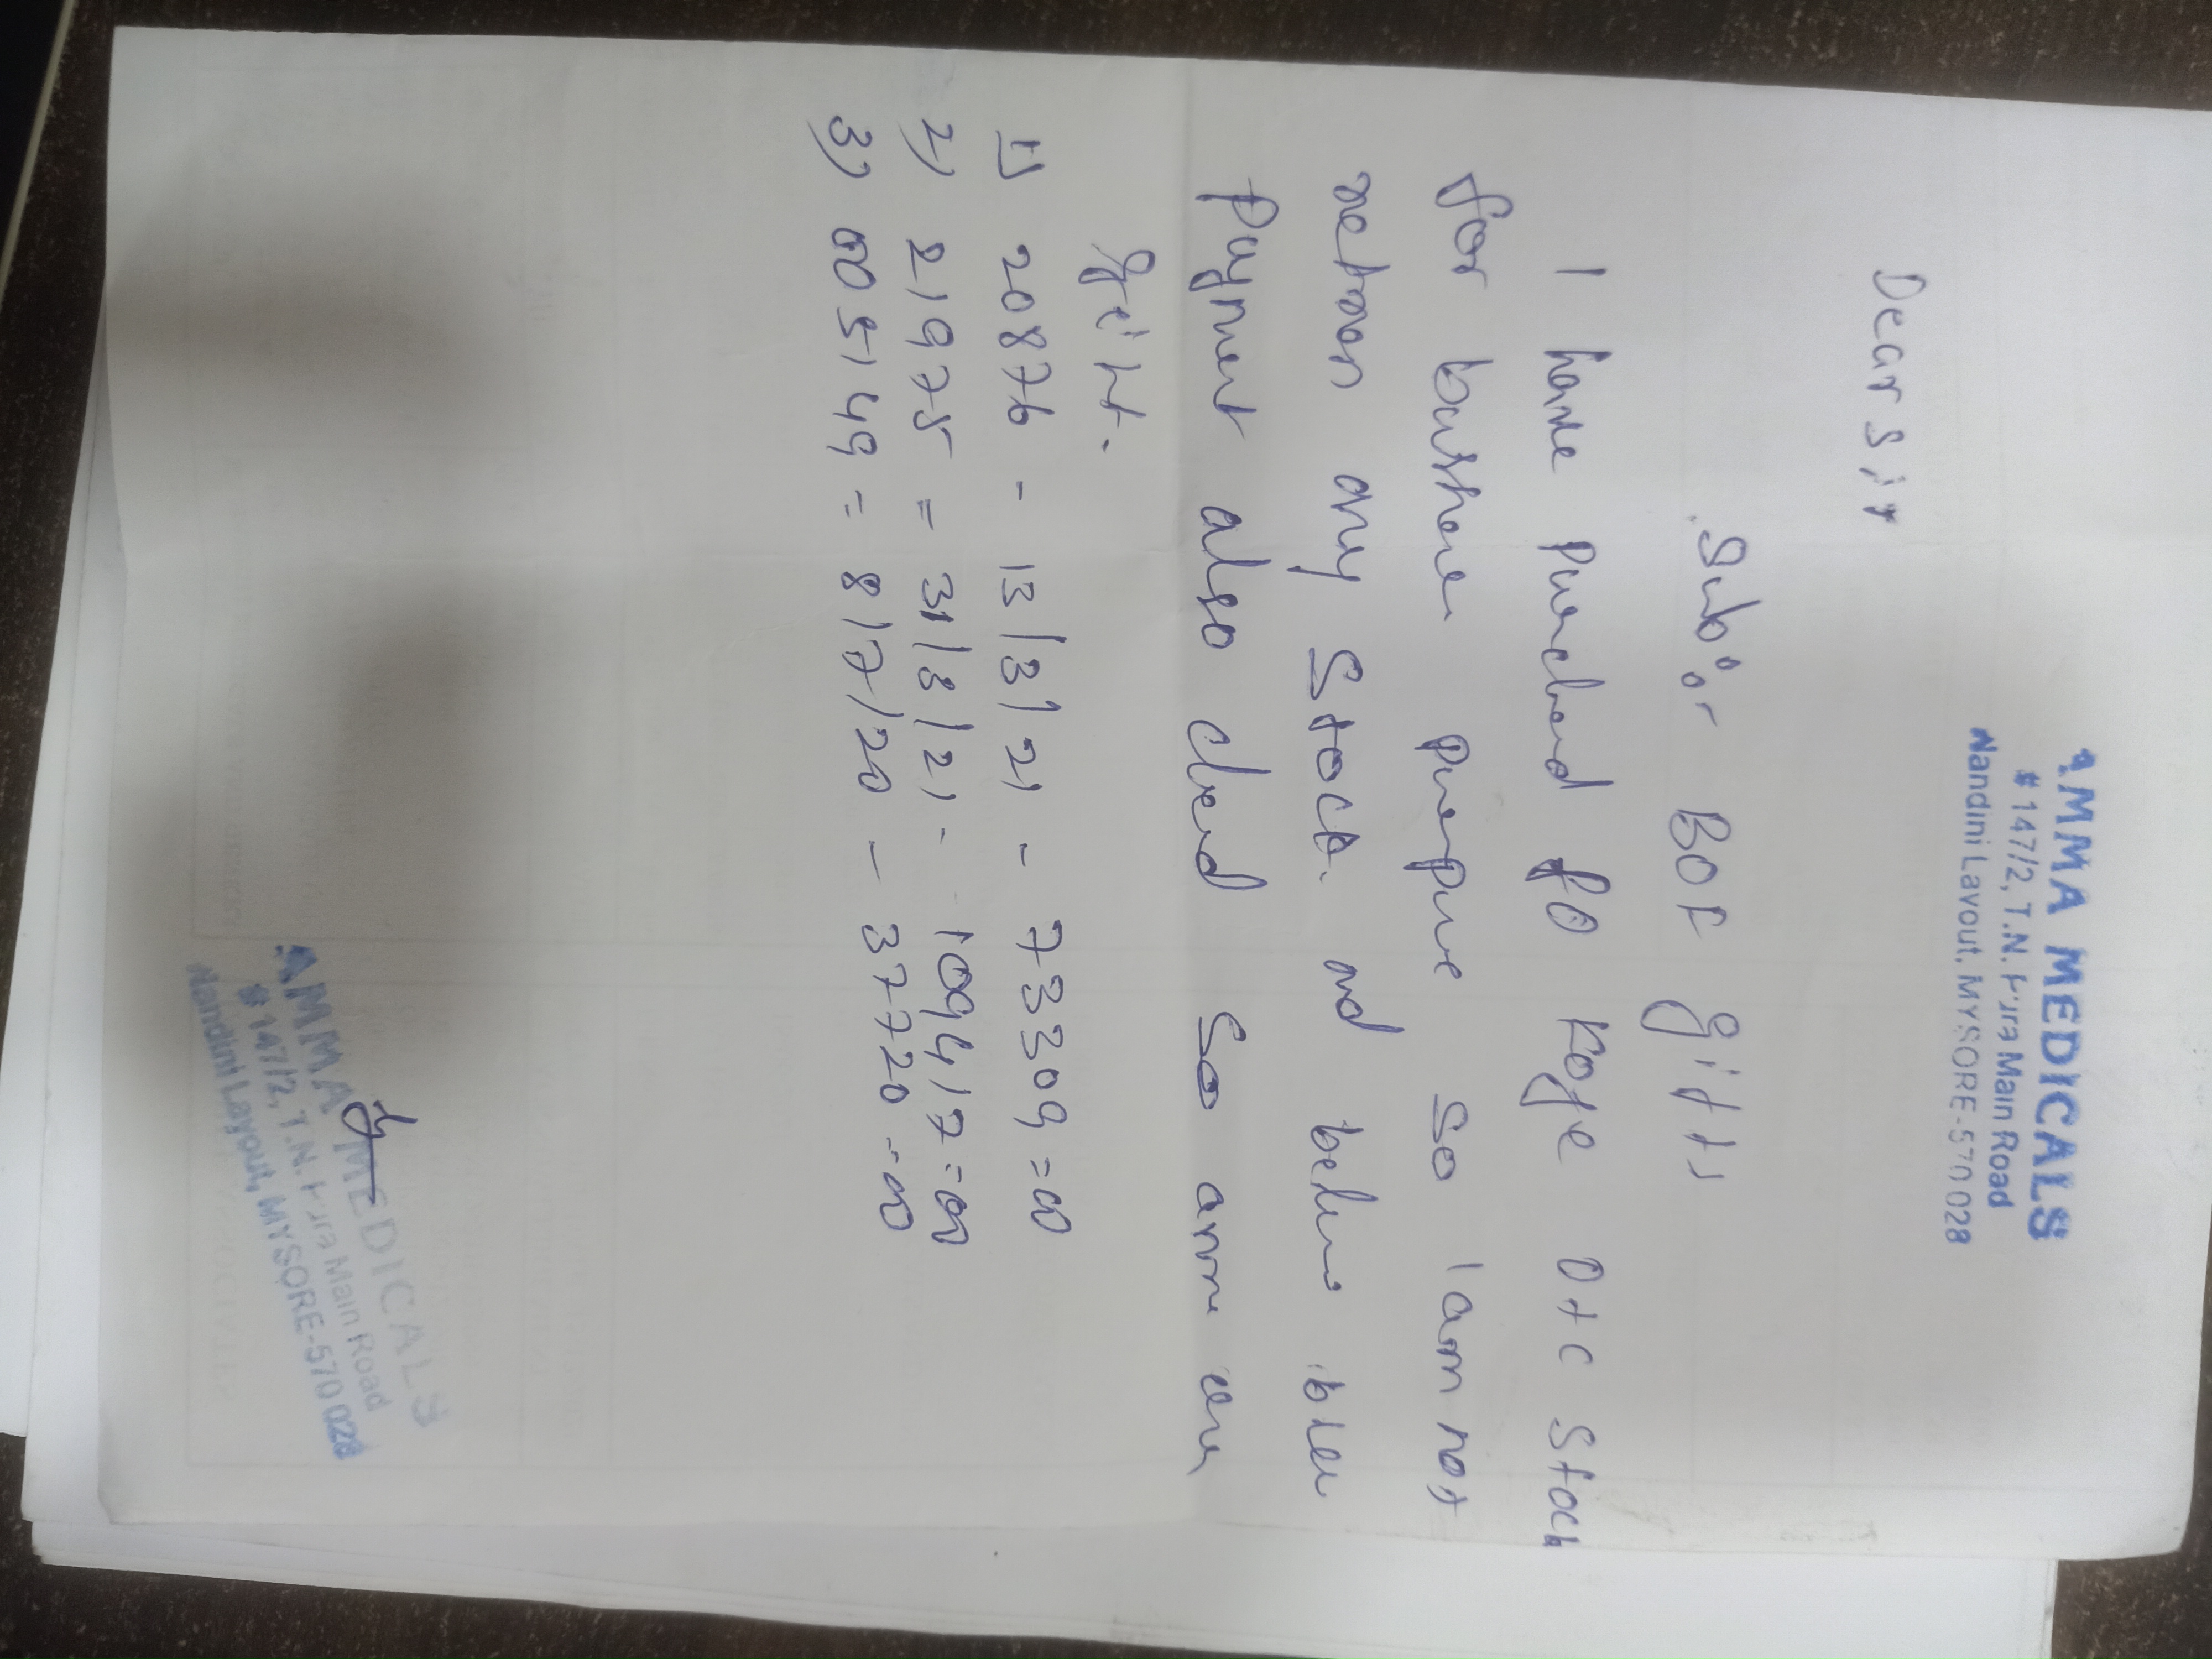 AMMA MEDICALS
# 147/2, T.N. Pura Main Road
Nandini Layout, MYSORE-570 028
Dear Sir
Sub:- BOF gifts
I have Purchend Koge Otc Stock
for so I am not
any Stock. nd belno blen
Payment also clend So arrn
gift.
1) 20876 - 13/3/21 - 733309=00
2) 21975 = 31/3/21 - 109417=00
3) 005149 = 8/7/20 - 37720=00
AMMA MEDICALS
# 147/2, T.N. Pura Main Road
Nandini Layout, MYSORE-570 028